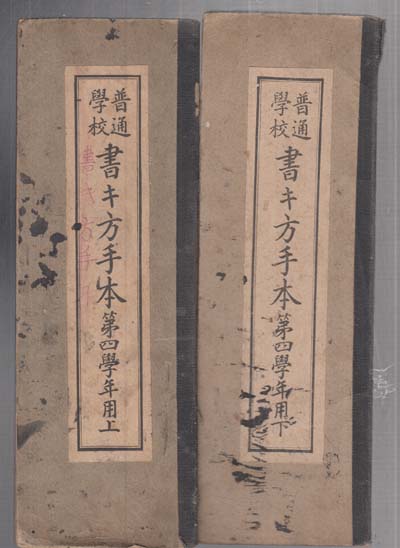 普通
學校
書キ方手本
第四學年用上
書キ方手
普通
學校
書キ方手本
第四學年用下